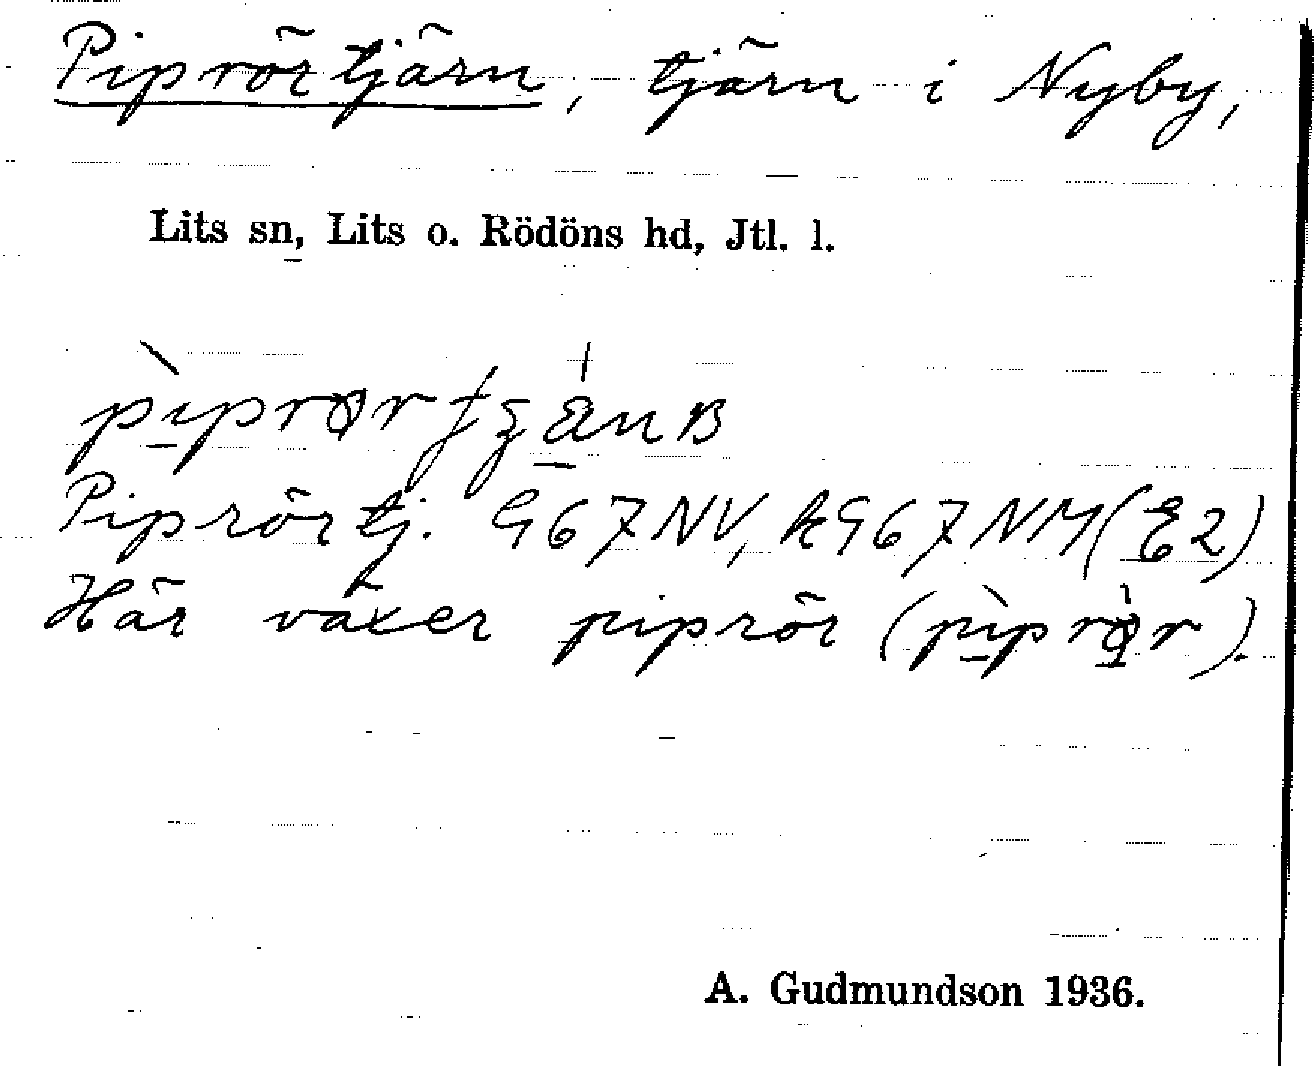 Piprörtjärn, tjärn i Nyby,
Lits sn, Lits o. Rödöns hd, Jtl. l.
Piprörtj. G67NV, kG67NM(E2)
Här växer piprör (pìprø̀r).
A. Gudmundson 1936.